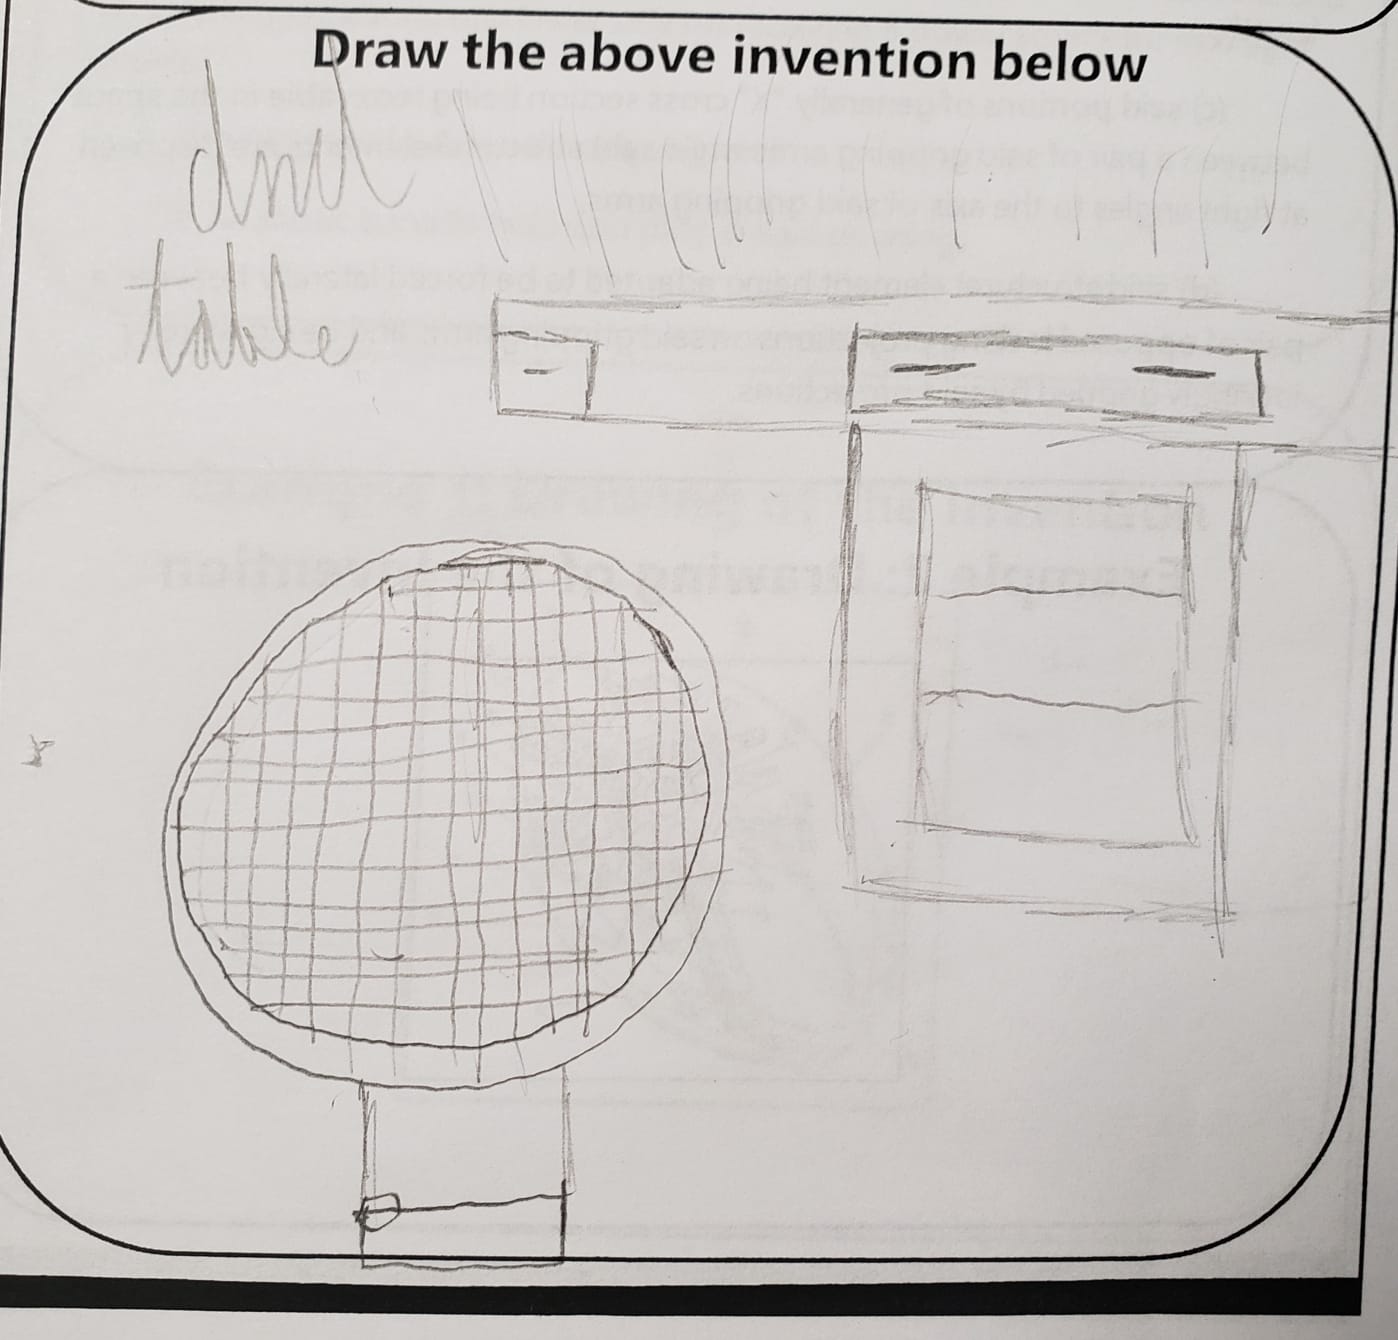 Draw the above invention below
dnd
table